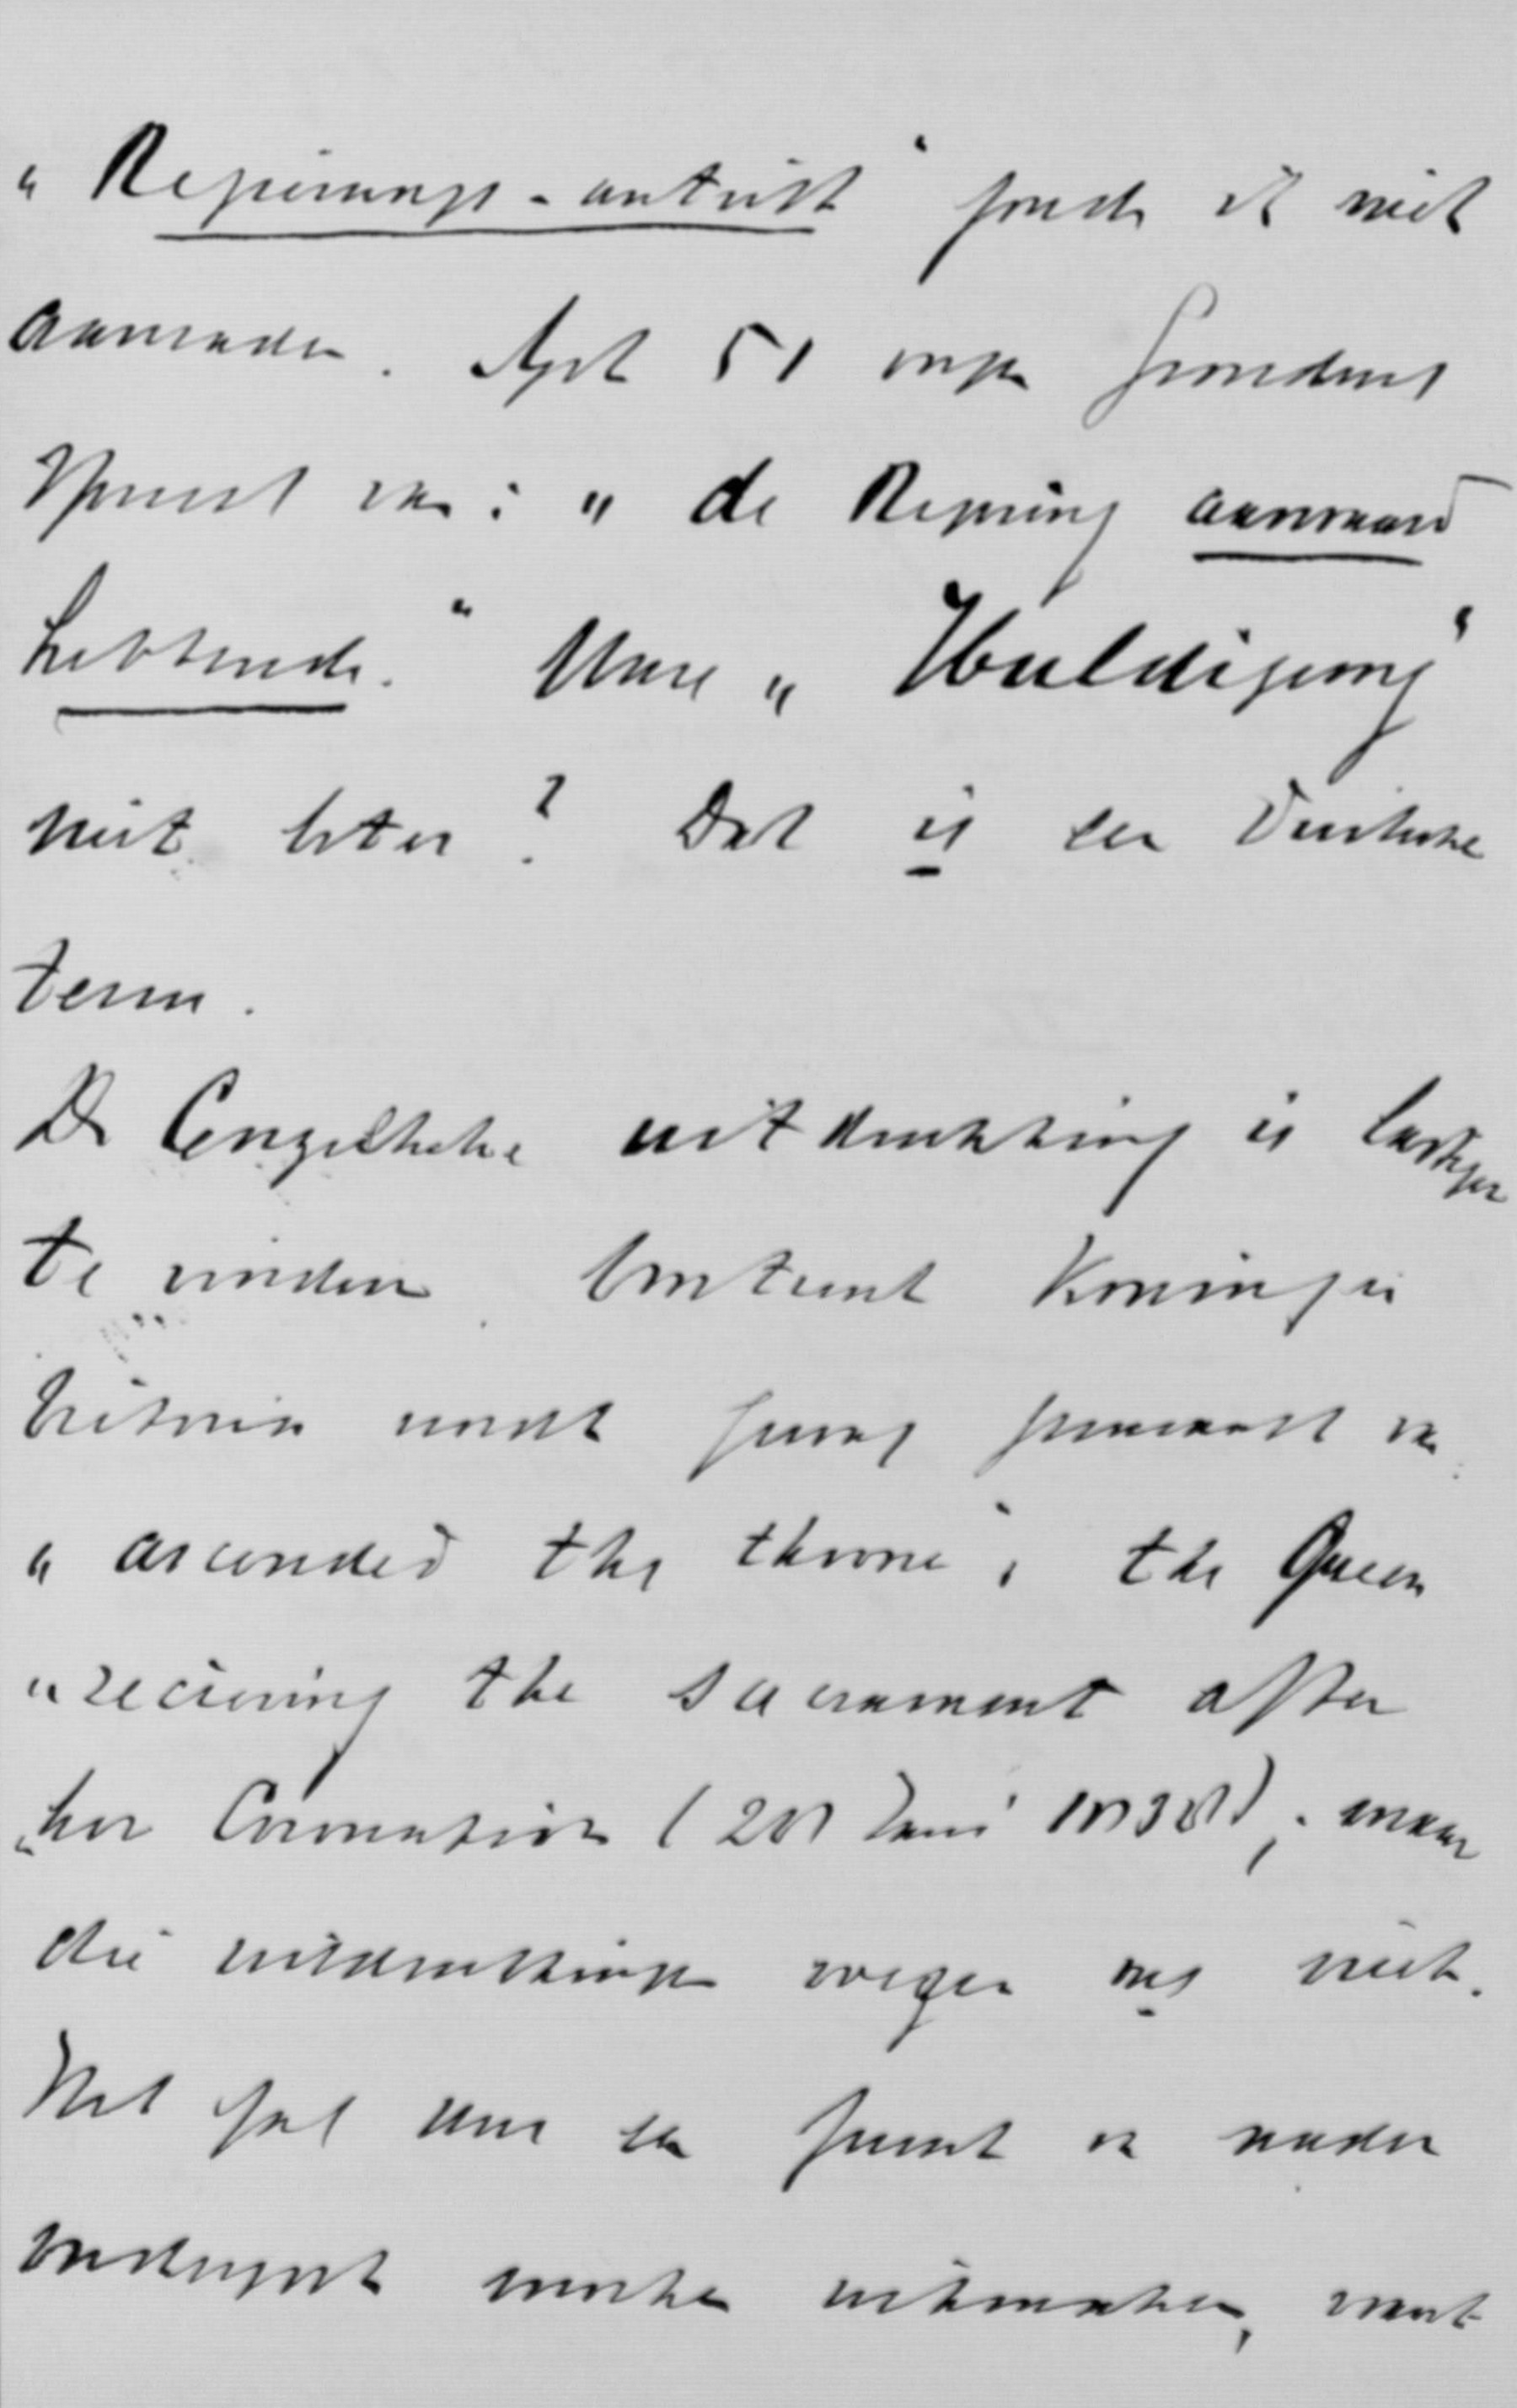 „Regierungs-antritt" zoude ik niet
aanraden. Art 51 onzer Grondwet
spreekt van: „de Regeering aanvaard
hebbende." Ware „Huldigung"
niet beter? Dat is een Duitsche
term.
De Engelsche uitdrukking is lastiger
te vinden. Omtrent Koningin
Victoria wordt gewag gemaakt van
„ascended the throne; the Queen
„receiving the sacrament after
„her Coronation (28 Juni 1838); maar
die uitdrukkingen voegen ons niet.
Het zal een punt van nader
onderzoek moeten uitmaken, want